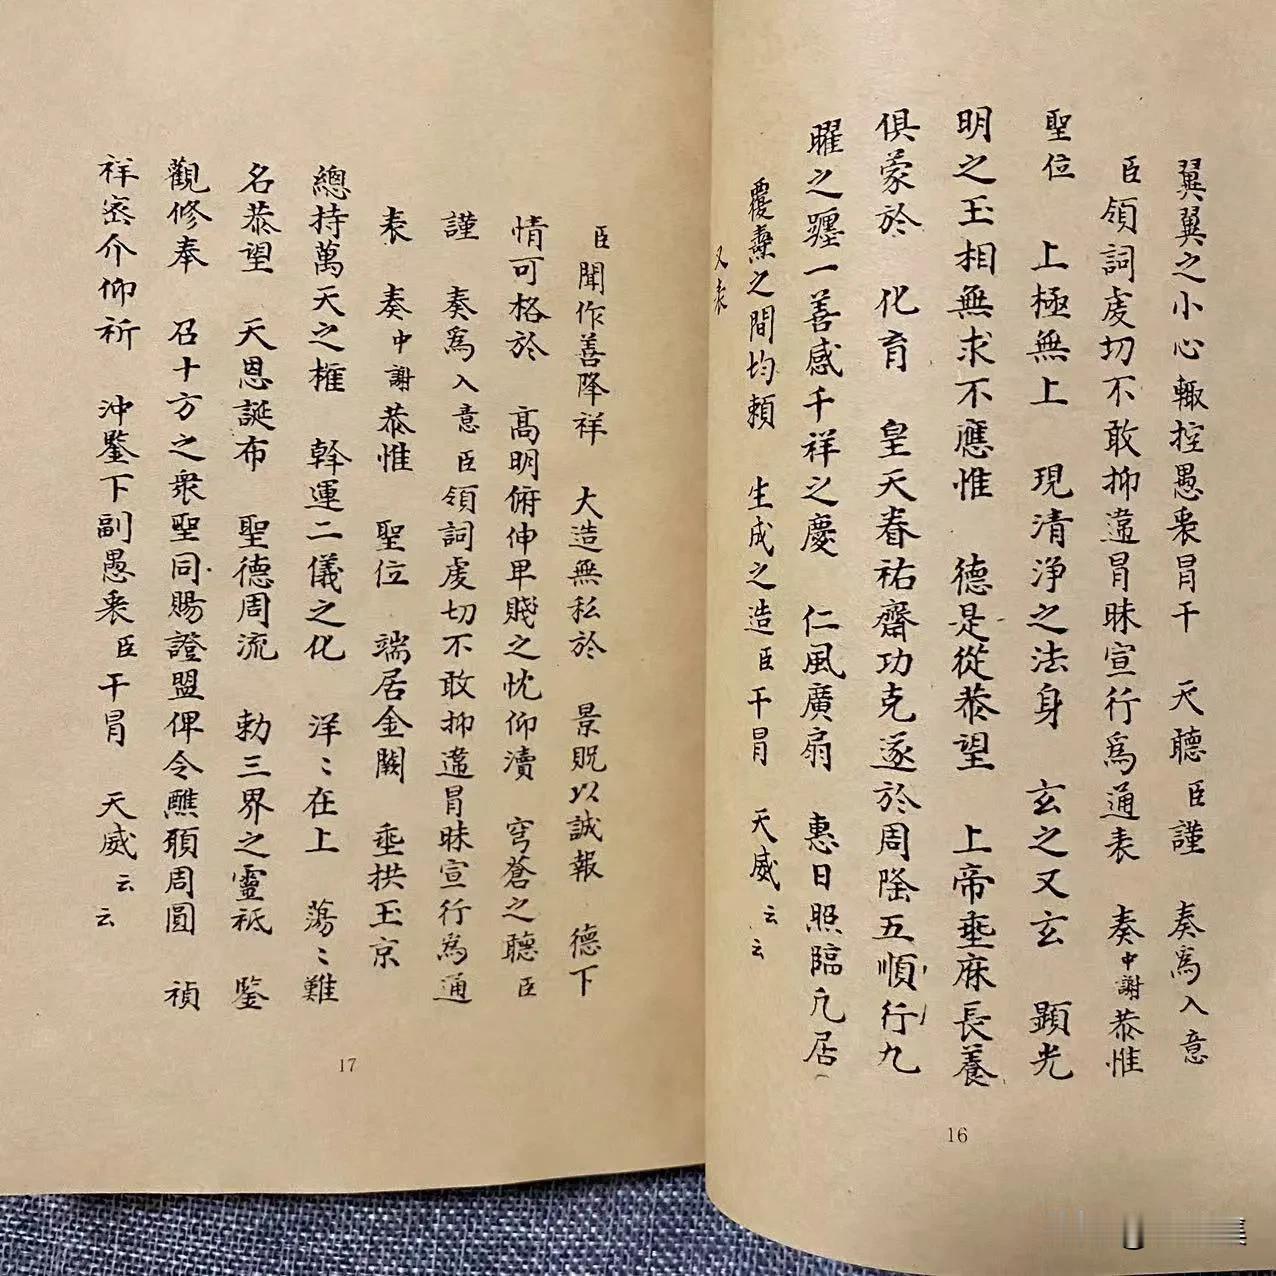 翼翼之小心輙控愚衷冒干　天聽臣謹　奏爲入意
臣領詞虔切不敢抑違冒昧宣行爲通表　奏中謝恭惟
聖位　上極無上　現清淨之法身　玄之又玄　顯光
明之玉相無求不應惟　德是從恭望　上帝垂庥長養
俱蒙於　化育　皇天眷祐齋功克遂於周隆五順行九
曜之躔一善感千祥之慶　仁風廣扇　惠日照臨凡居
覆燾之間均頼　生成之造臣干冒　天威云云
又表
臣聞作善降祥　大造無私於　景貺以誠報　德下
情可格於　高明俯伸卑賤之忱仰瀆　穹蒼之聽臣
謹　奏爲入意臣領詞虔切不敢抑違冒昧宣行爲通
表　奏中謝恭惟　聖位　端居金闕　垂拱玉京
總持萬天之權　斡運二儀之化　洋〻在上　蕩〻難
名恭望　天恩誕布　聖德周流　勅三界之靈祗　鑒
觀修奉　召十方之衆聖同賜證盟俾令醮願周圓　禎
祥密介仰祈　沖鑒下副愚衷臣干冒　天威云云
16
17